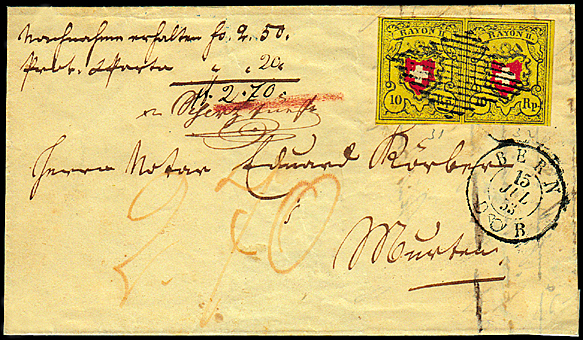 Nachnahme erhalten fr. 2. 50.
Prov. & Porto " " 20.
fr. 2. 70.
Herrn Notar Eduard Körber
Murten
2 70
RAYON II.
RAYON II.
10
Rp.
BERN
15
JUL
53